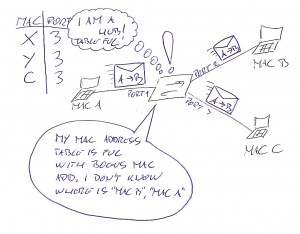 MAC PORT
X 3
Y 3
C 3
I AM A
HUB!
TABLE FUL!
!
A→B
PORT 2
MAC B
MAC A
PORT 1
A→B
A→B
PORT 3
MAC C
MY MAC ADDRESS
TABLE IS FUL
WITH BOGUS MAC
ADD. I DON'T KNOW
WHERE IS "MAC B", "MAC A"